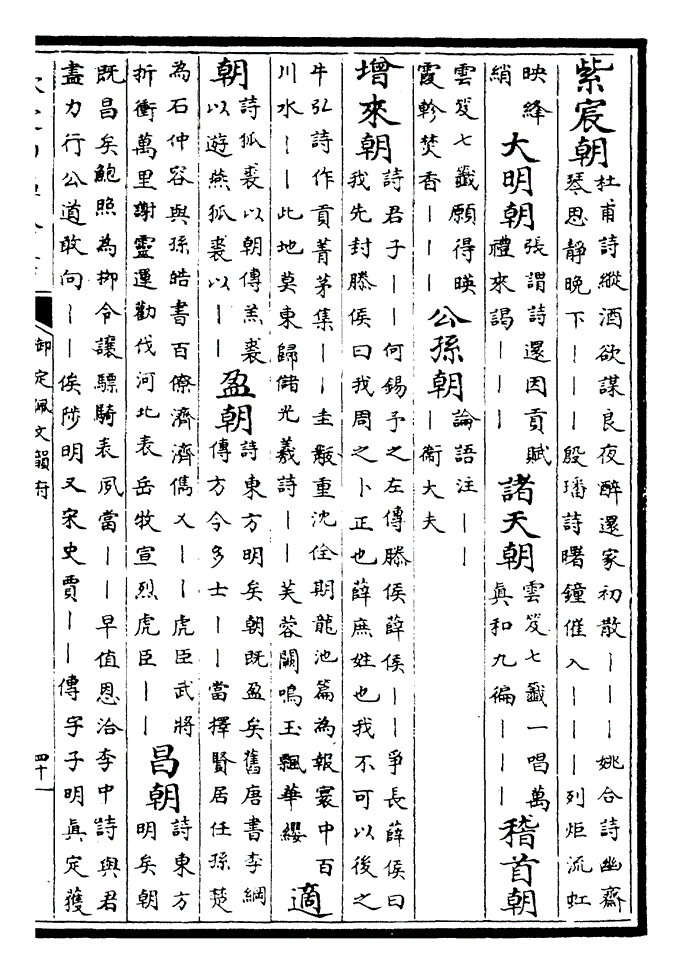 紫宸朝
杜甫詩縱酒欲謀良夜醉還家初散｜｜｜姚合詩幽齋
琴思靜晚下｜｜｜殷璠詩曙鐘催入｜｜｜列炬流虹
映絳
綃
大明朝
張謂詩還因貢賦
禮來謁｜｜｜
諸天朝
雲笈七籤一唱萬
真和九徧｜｜｜
稽首朝
雲笈七籤願得暎
霞軫焚香｜｜｜
公孫朝
論語注｜｜
｜衛大夫
增來朝
詩君子｜｜何錫予之左傳滕侯薛侯｜｜爭長薛侯曰
我先封滕侯曰我周之卜正也薛庶姓也我不可以後之
牛弘詩作貢菁茅集｜｜圭黻重沈佺期龍池篇為報寰中百
川水｜｜此地莫東歸儲光羲詩｜｜芙蓉闕鳴玉飄華纓
適
朝
詩狐裘以朝傳羔裘
以遊燕狐裘以｜｜
盈朝
詩東方明矣朝既盈矣舊唐書李綱
傳方今多士｜｜當擇賢居任孫楚
為石仲容與孫皓書百僚濟濟儁乂｜｜虎臣武將
折衝萬里謝靈運勸伐河北表岳牧宣烈虎臣｜｜
昌朝
詩東方
明矣朝
既昌矣鮑照為柳令讓驃騎表夙當｜｜早值恩洽李中詩與君
盡力行公道敢向｜｜俟陟明又宋史賈｜｜傳字子明真定獲
御定佩文韻府
四十一